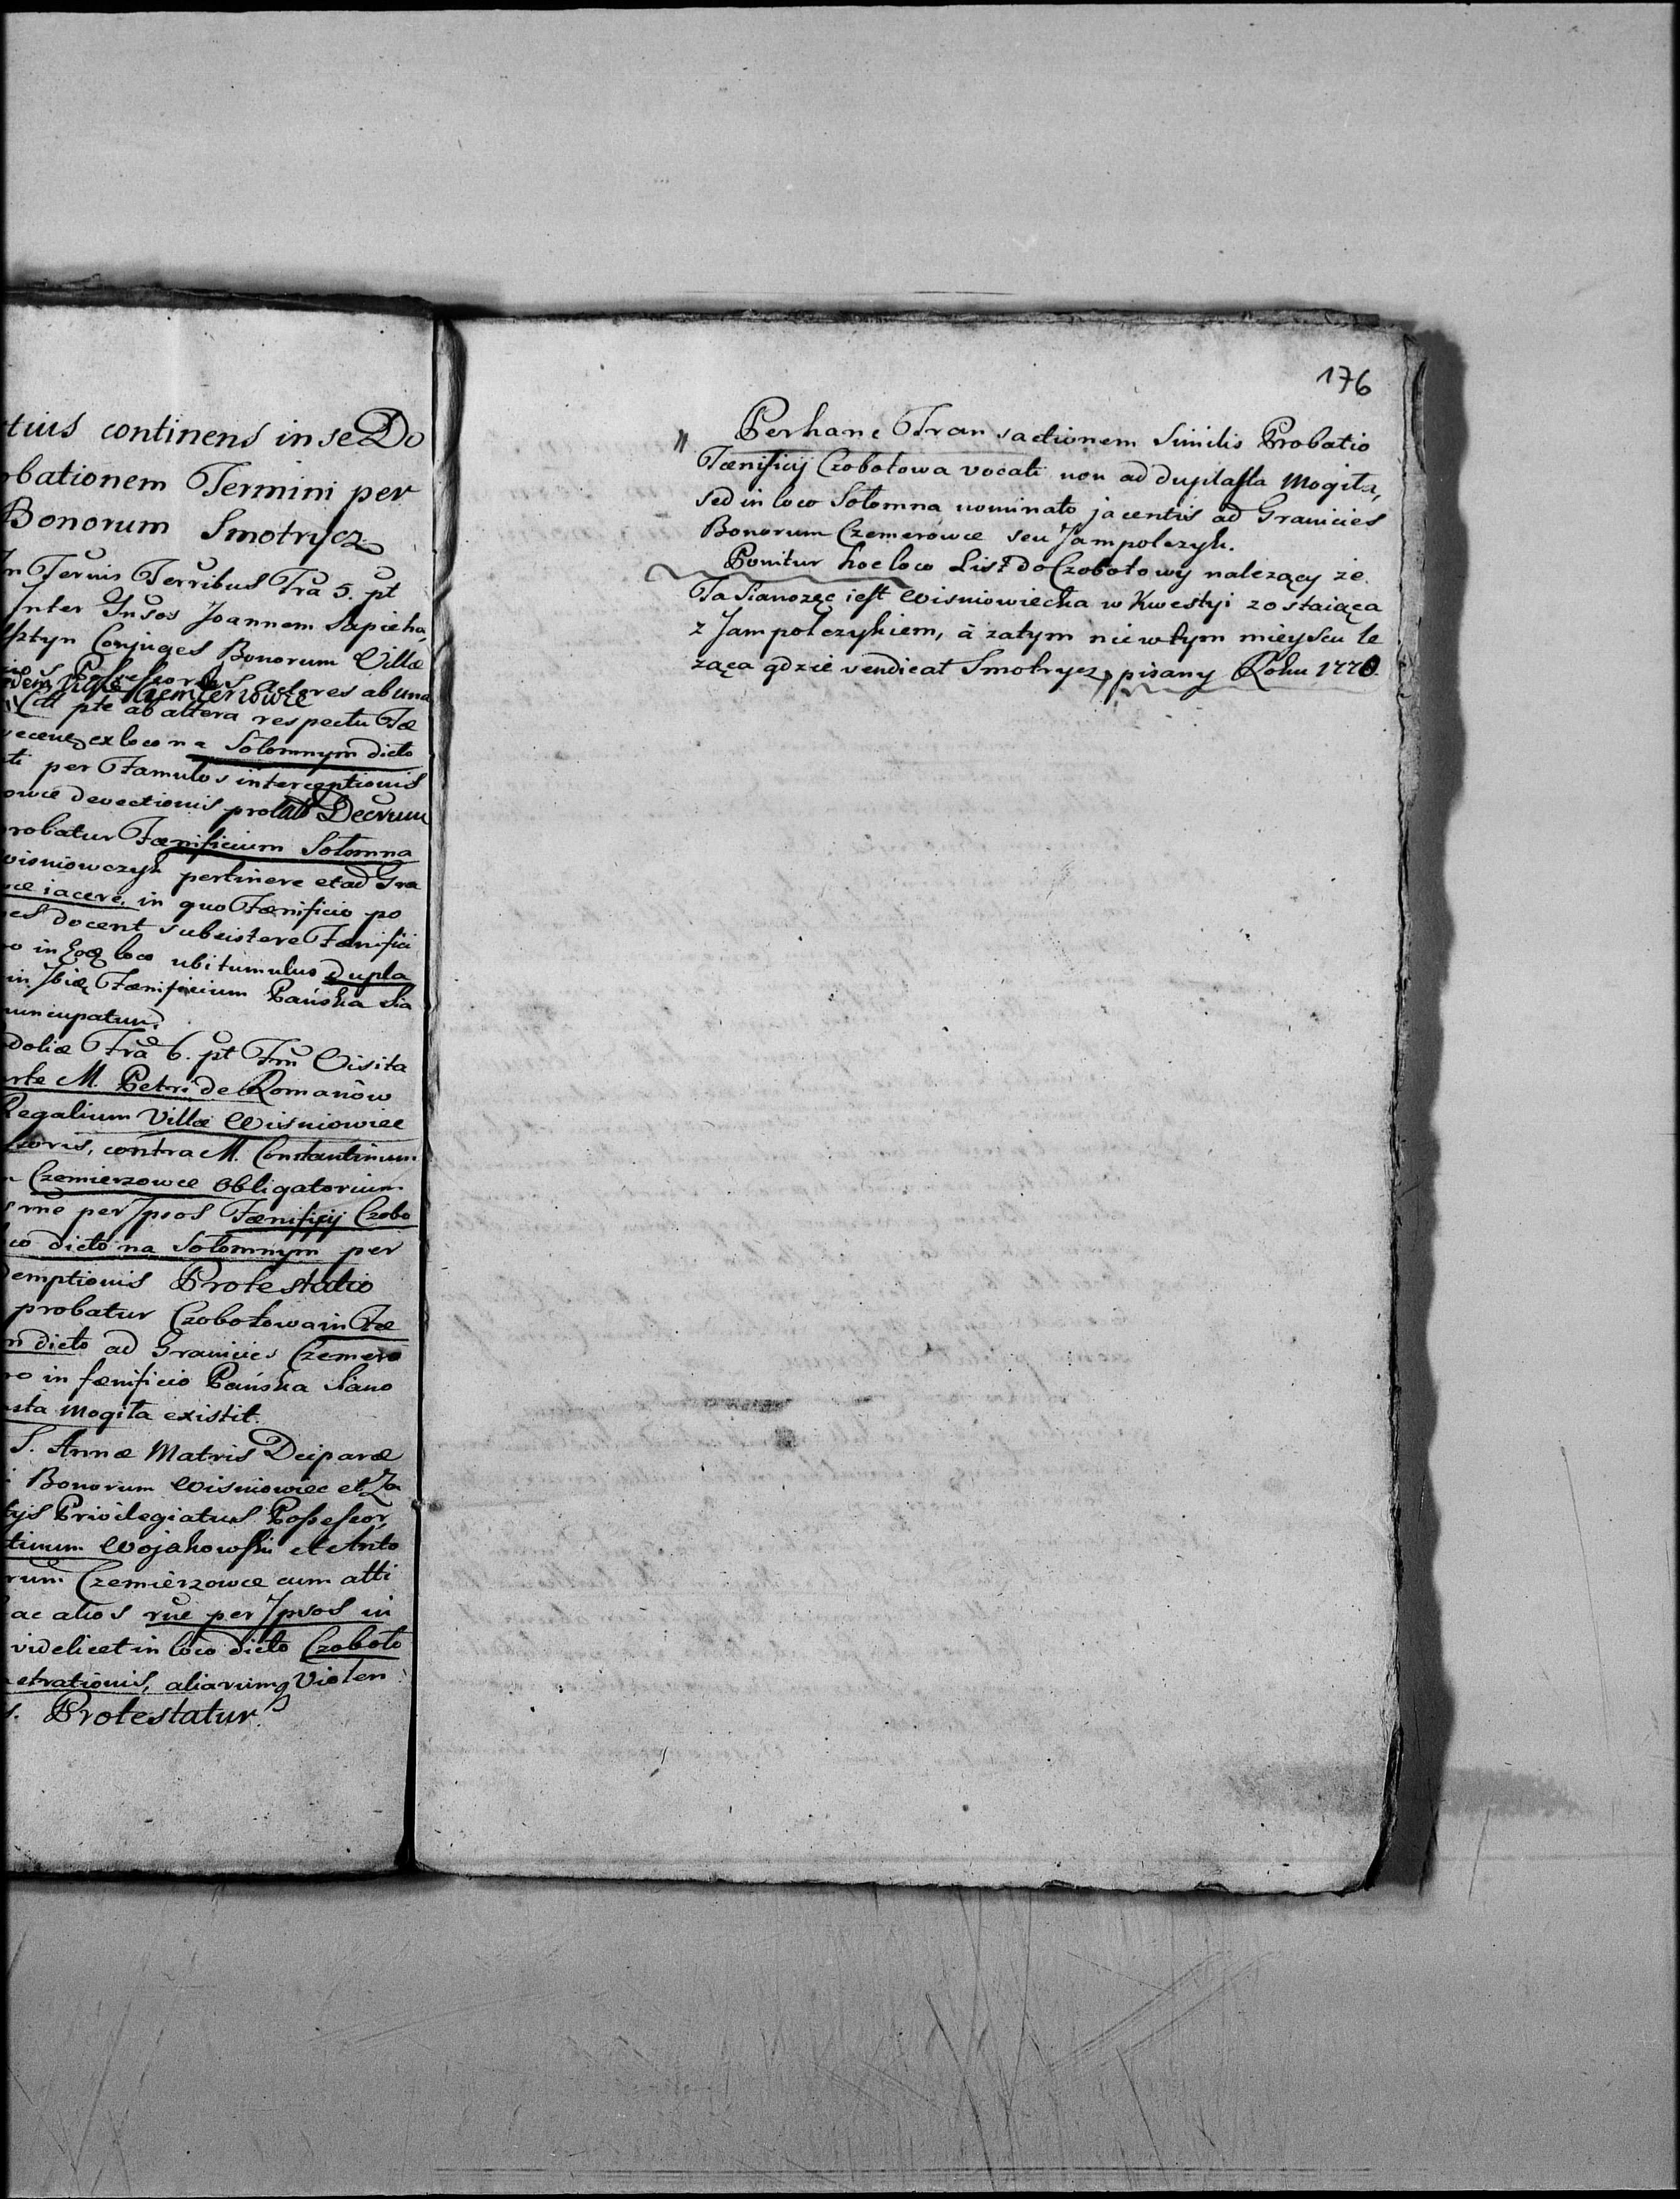 tius continens in se Do
bationem Termini per
Bonorum Smotrycz
In Fervis Terribus Fra 5. pt
Inter Gnsos Joannem Sapieha
sztyn Conjuges Bonorum Villæ
Czemierowce
Possessores actores ab una
pte ab altera respectu Fæ
ex loco na Solomnym dicto
ti per Famulos interceptionis
owce devectionis prolat Decrum
robatur Fænificium Solomna
wisniowczyk pertinere et ad Gra
ce iacere, in quo Fænificio po
es docent subsistere Fænifici
o in Eoq loco ubi tumulus Dupla
in Ibiq Fænificium Pańska Sia
nuncupatur.
doliæ Fra 6. pt Fm Visita
arte M. Petri de Romanòw
Regalium Villæ Wisniowiec
soris, contra M. Constantinum
n Czemierzowce obligatorium
rne per Ipsos Fænificij Czobo
co dicto na Solomnym per
demptionis Protestatio
probatur Czobotowa in Fæ
n dicto ad Granicies Czemero
ro in fænificio Pańska Siano
asta Mogiła existit.
S. Annæ Matris Deiparæ
i Bonorum Wisniowiec et Za
tys Privilegiatus Possessor,
tinum Wojakowski et Anto
rum Czemierzowce cum atti
ac alios rne per Ipsos in
videlicet in loco dicto Czoboto
etrationis, aliarumq Violen
s. Protestatur
176
" Per hanc Transactionem Similis Probatio
Fænificij Czobotowa vocati non ad duplasta Mogiła,
sed in loco Solomna nominato jacentis ad Granicies
Bonorum Czemerowce seu Jampolczyk.
Ponitur hoc loco List do Czobotowy nalezący ze
Ta Sianozęc iest Wisniowiecka w Kwestyi zostaiąca
z Jampolczykiem, à zatym nie w tym mieyscu le
ząca gdzie vendicat Smotrycz, pisany Roku 1770.